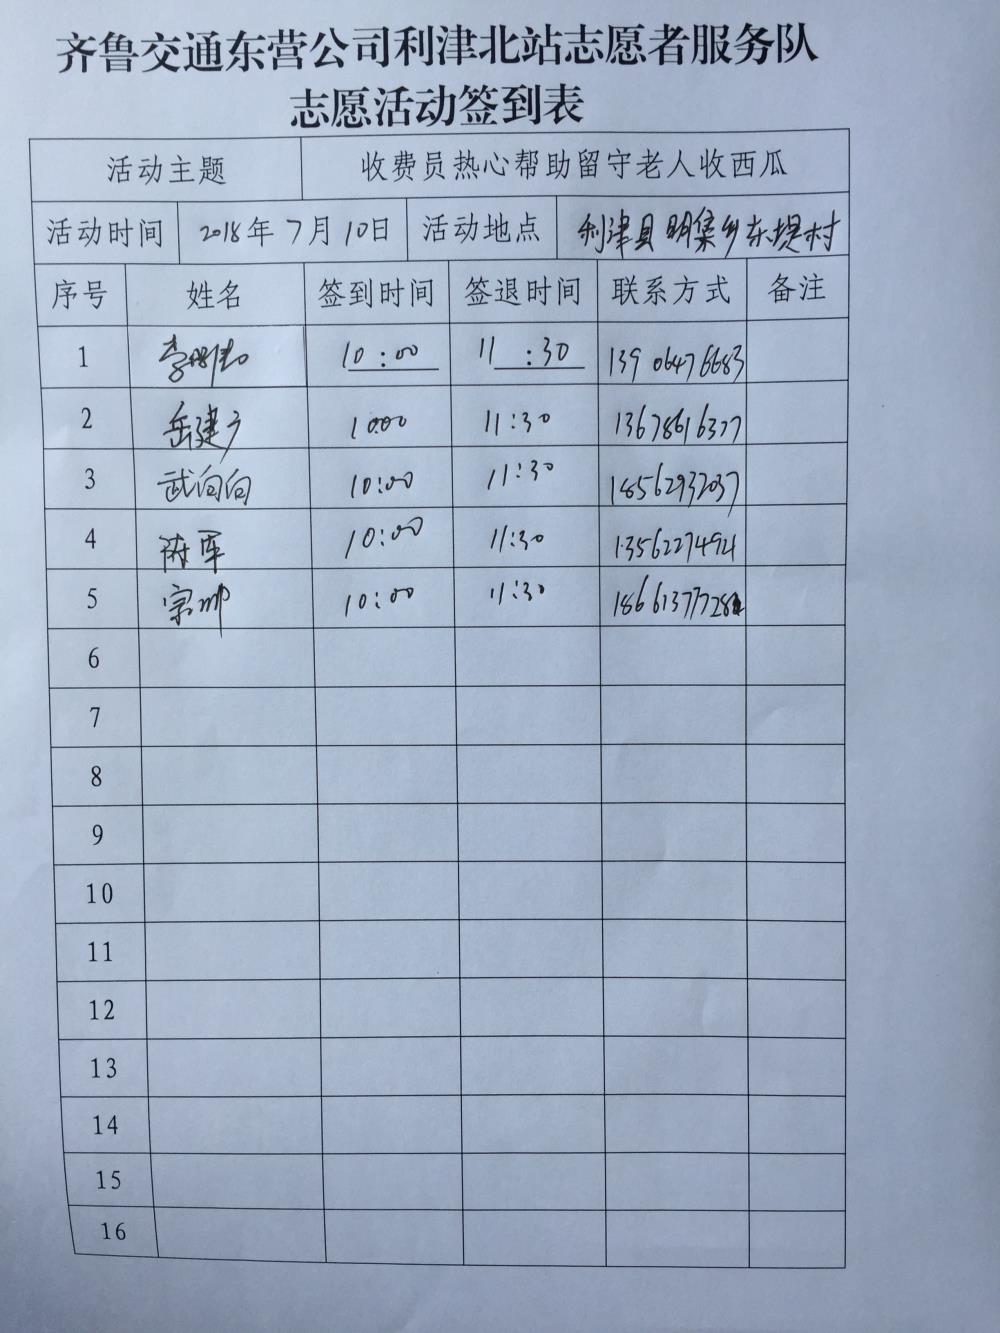 齐鲁交通东营公司利津北站志愿者服务队
志愿活动签到表
活动主题 收费员热心帮助留守老人收西瓜
活动时间 2018年7月10日 活动地点 利津县明集乡东堤村
序号 姓名 签到时间 签退时间 联系方式 备注
1 10:00 11:30 13906476683
2 岳建广 10:00 11:30 13678616377
3 武向向 10:00 11:30 18562932037
4 10:00 11:30 13562274921
5 宗帅 10:00 11:30
6
7
8
9
10
11
12
13
14
15
16